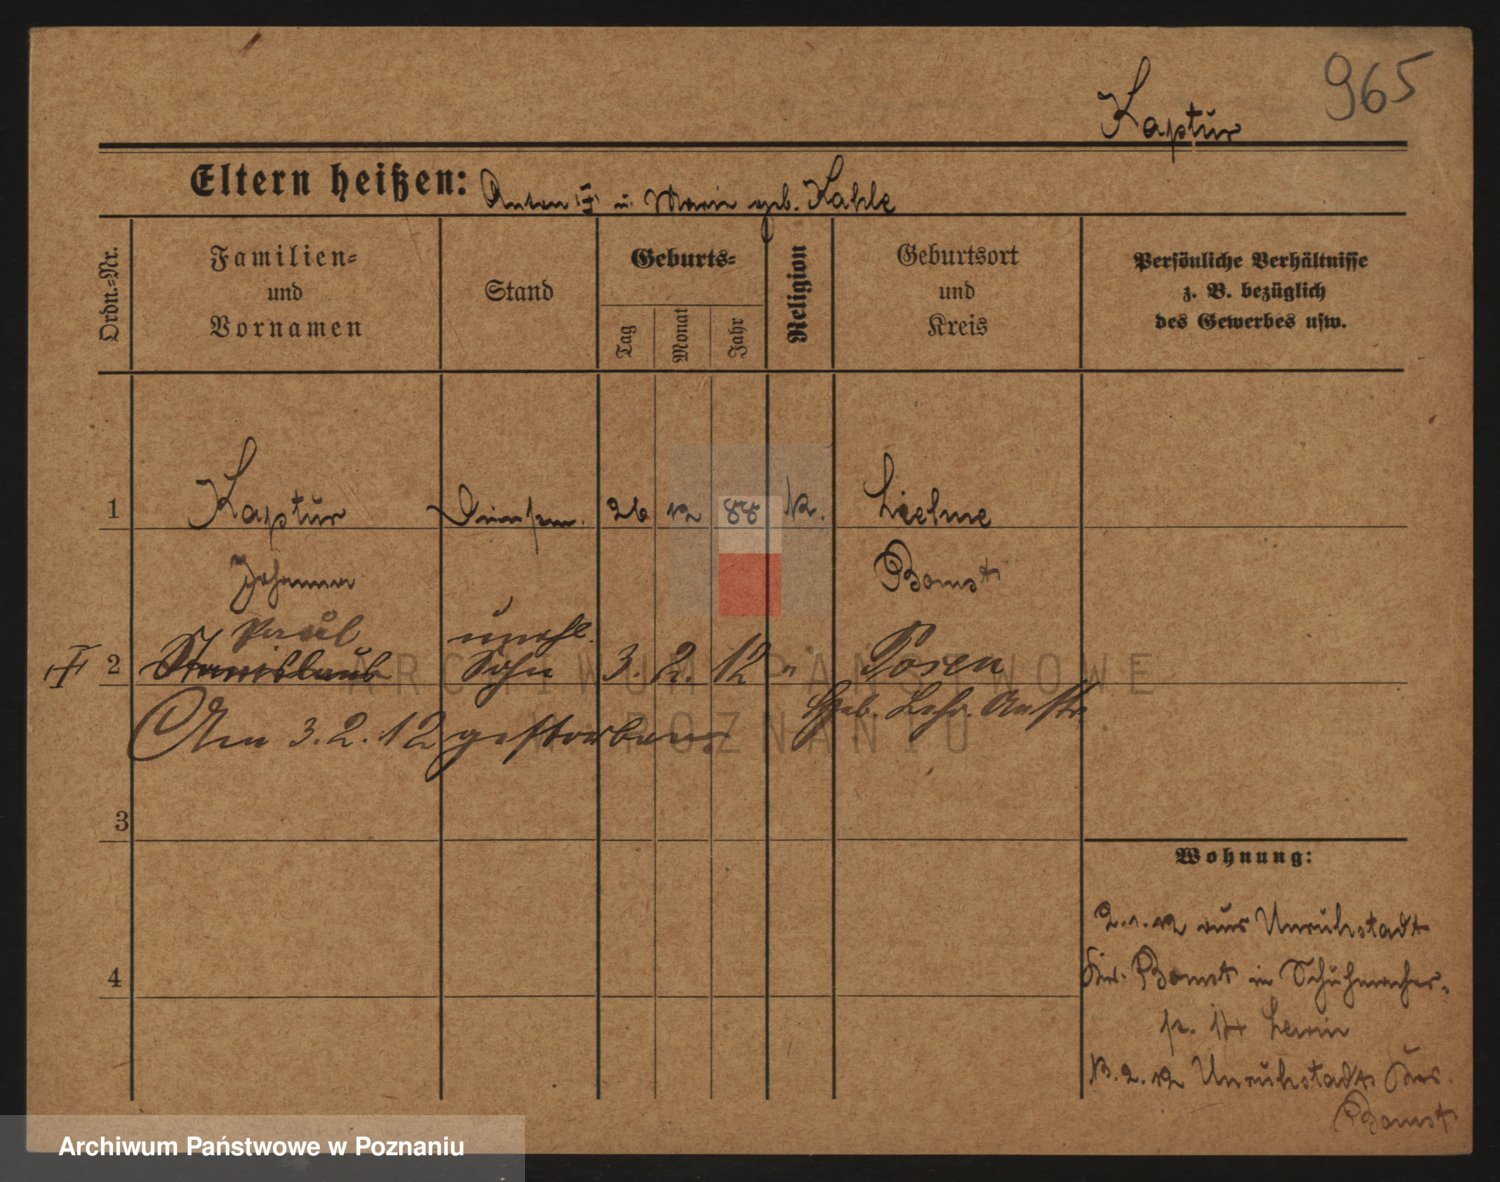 965
Kaptur
Eltern heißen: Anton † u. Marie geb. Kahle
Ordn.-Nr.
Familien-
und
Vornamen
Stand
Geburts-
Tag
Monat
Jahr
Religion
Geburtsort
und
Kreis
Persönliche Verhältnisse
z. B. bezüglich
des Gewerbes usw.
1 Kaptur 26 12 88 k.
Johanna Bomst
Paul unehl.
† 2 Stanislaus Sohn 3. 2. 12 " Posen
Am 3.2.12 gestorben. Heb. Lehr. Anst.
3
Wohnung:
2.1.12 aus Unruhstadt
Krs. Bomst in Schuhmacher-
4
str. 14
13.2.12 Unruhstadt Krs.
Bomst
ARCHIWUM PAŃSTWOWE
W POZNANIU
Archiwum Państwowe w Poznaniu